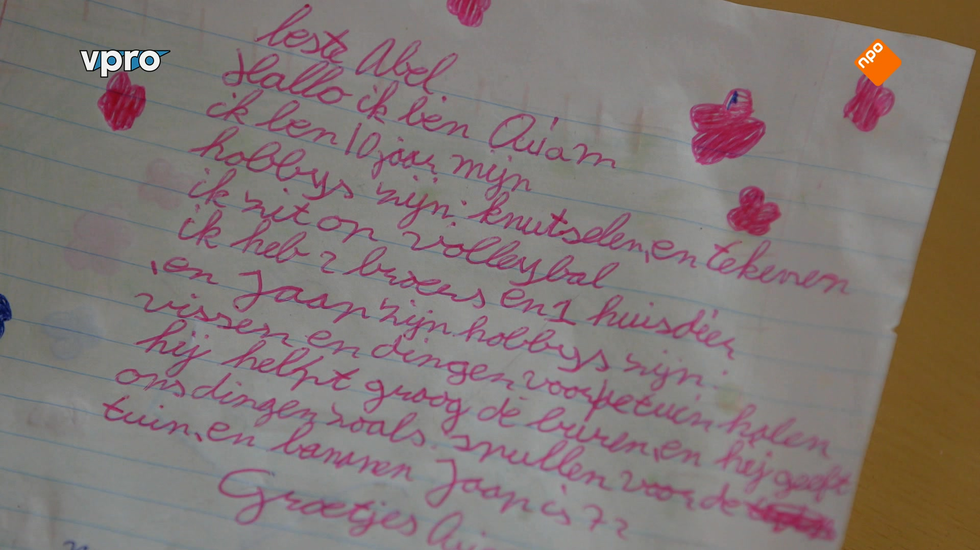 vpro
npo
beste Abel
Hallo ik ben Aviam
ik ben 10 jaar mijn
hobbys zijn: knutselen, en tekenen
ik zit op volleybal
ik heb 2 broers en 1 huisdier
, en Jaap zijn hobbys zijn:
vissen en dingen voor petuin halen
hij helpt graag de buren, en hij geeft
ons dingen zoals spullen voor de
tuin, en bananen Jaap is 72
Groetjes